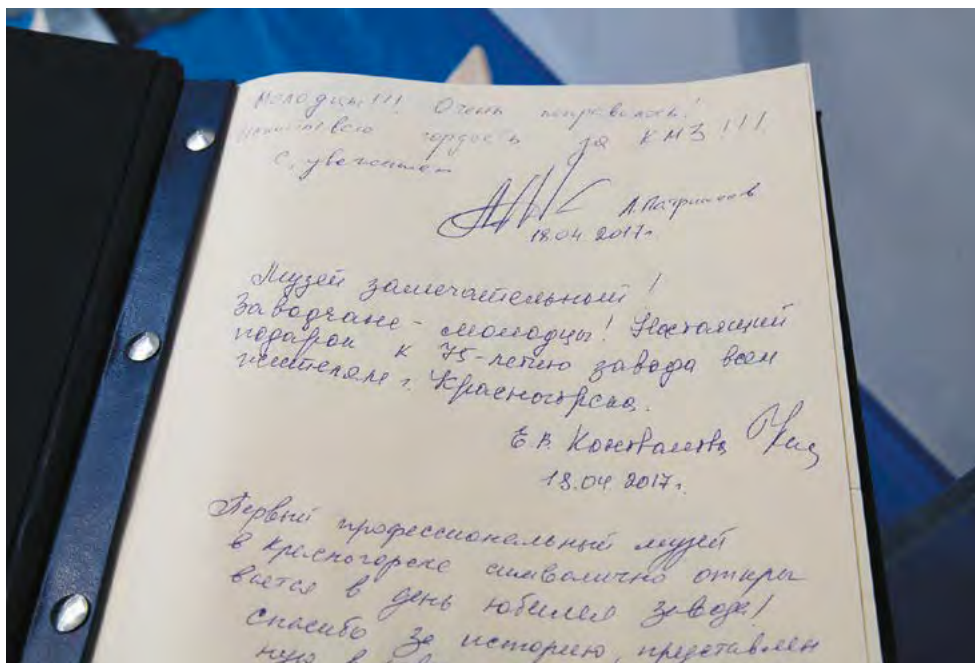 Молодцы!!! Очень понравилось!
гордость за КМЗ!!!
С уважением
18.04.2017г.
Музей замечательный!
Заводчане - молодцы! Настоящий
подарок к 75-летию завода всем
жителям г. Красногорска.
Е.В. Коновалова
18.04.2017г.
Первый профессиональный музей
в Красногорске символично откры
вается в день юбилея завода!
Спасибо за историю, представлен
ную в